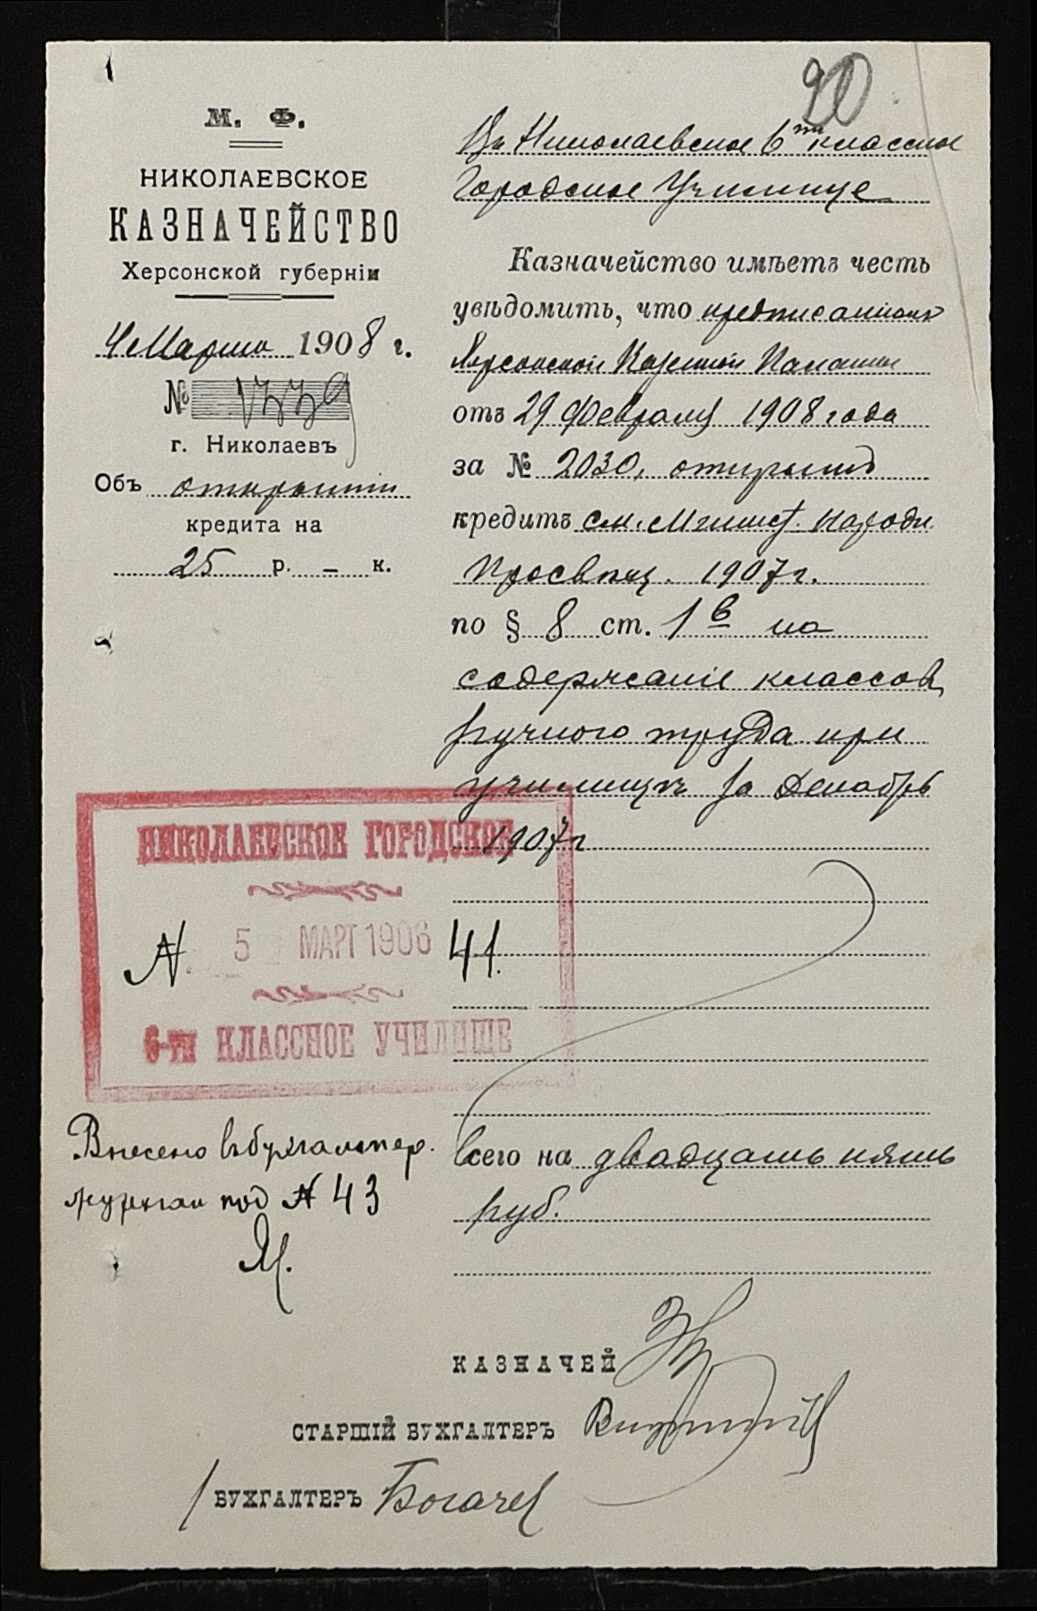 20
М. Ф.
НИКОЛАЕВСКОЕ
КАЗНАЧЕЙСТВО
Херсонской губерніи
4 Марта 1908 г.
№ 1779
г. Николаевъ
Объ открытіи
кредита на
25 р. – к.
Въ Николаевское 6ти классное
Городское Училище
Казначейство имѣетъ честь
увѣдомить, что предписаніемъ
Херсонской Казенной Палаты
отъ 29 февраля 1908 года
за № 2030, открытъ
кредитъ см. Минист. Народн.
Просвѣщ. 1907 г.
по § 8 ст. 1 в на
содержаніе классовъ
ручного труда при
училищѣ за Декабрь
1907 г
НИКОЛАЕВСКОЕ ГОРОДСКОЕ
№ 5 МАРТ 1908 41.
6-ти КЛАССНОЕ УЧИЛИЩЕ
Внесено въ бухгалтер.
журнал под № 43
всего на двадцать пять
руб.
КАЗНАЧЕЙ
СТАРШІЙ БУХГАЛТЕРЪ
БУХГАЛТЕРЪ Богачев